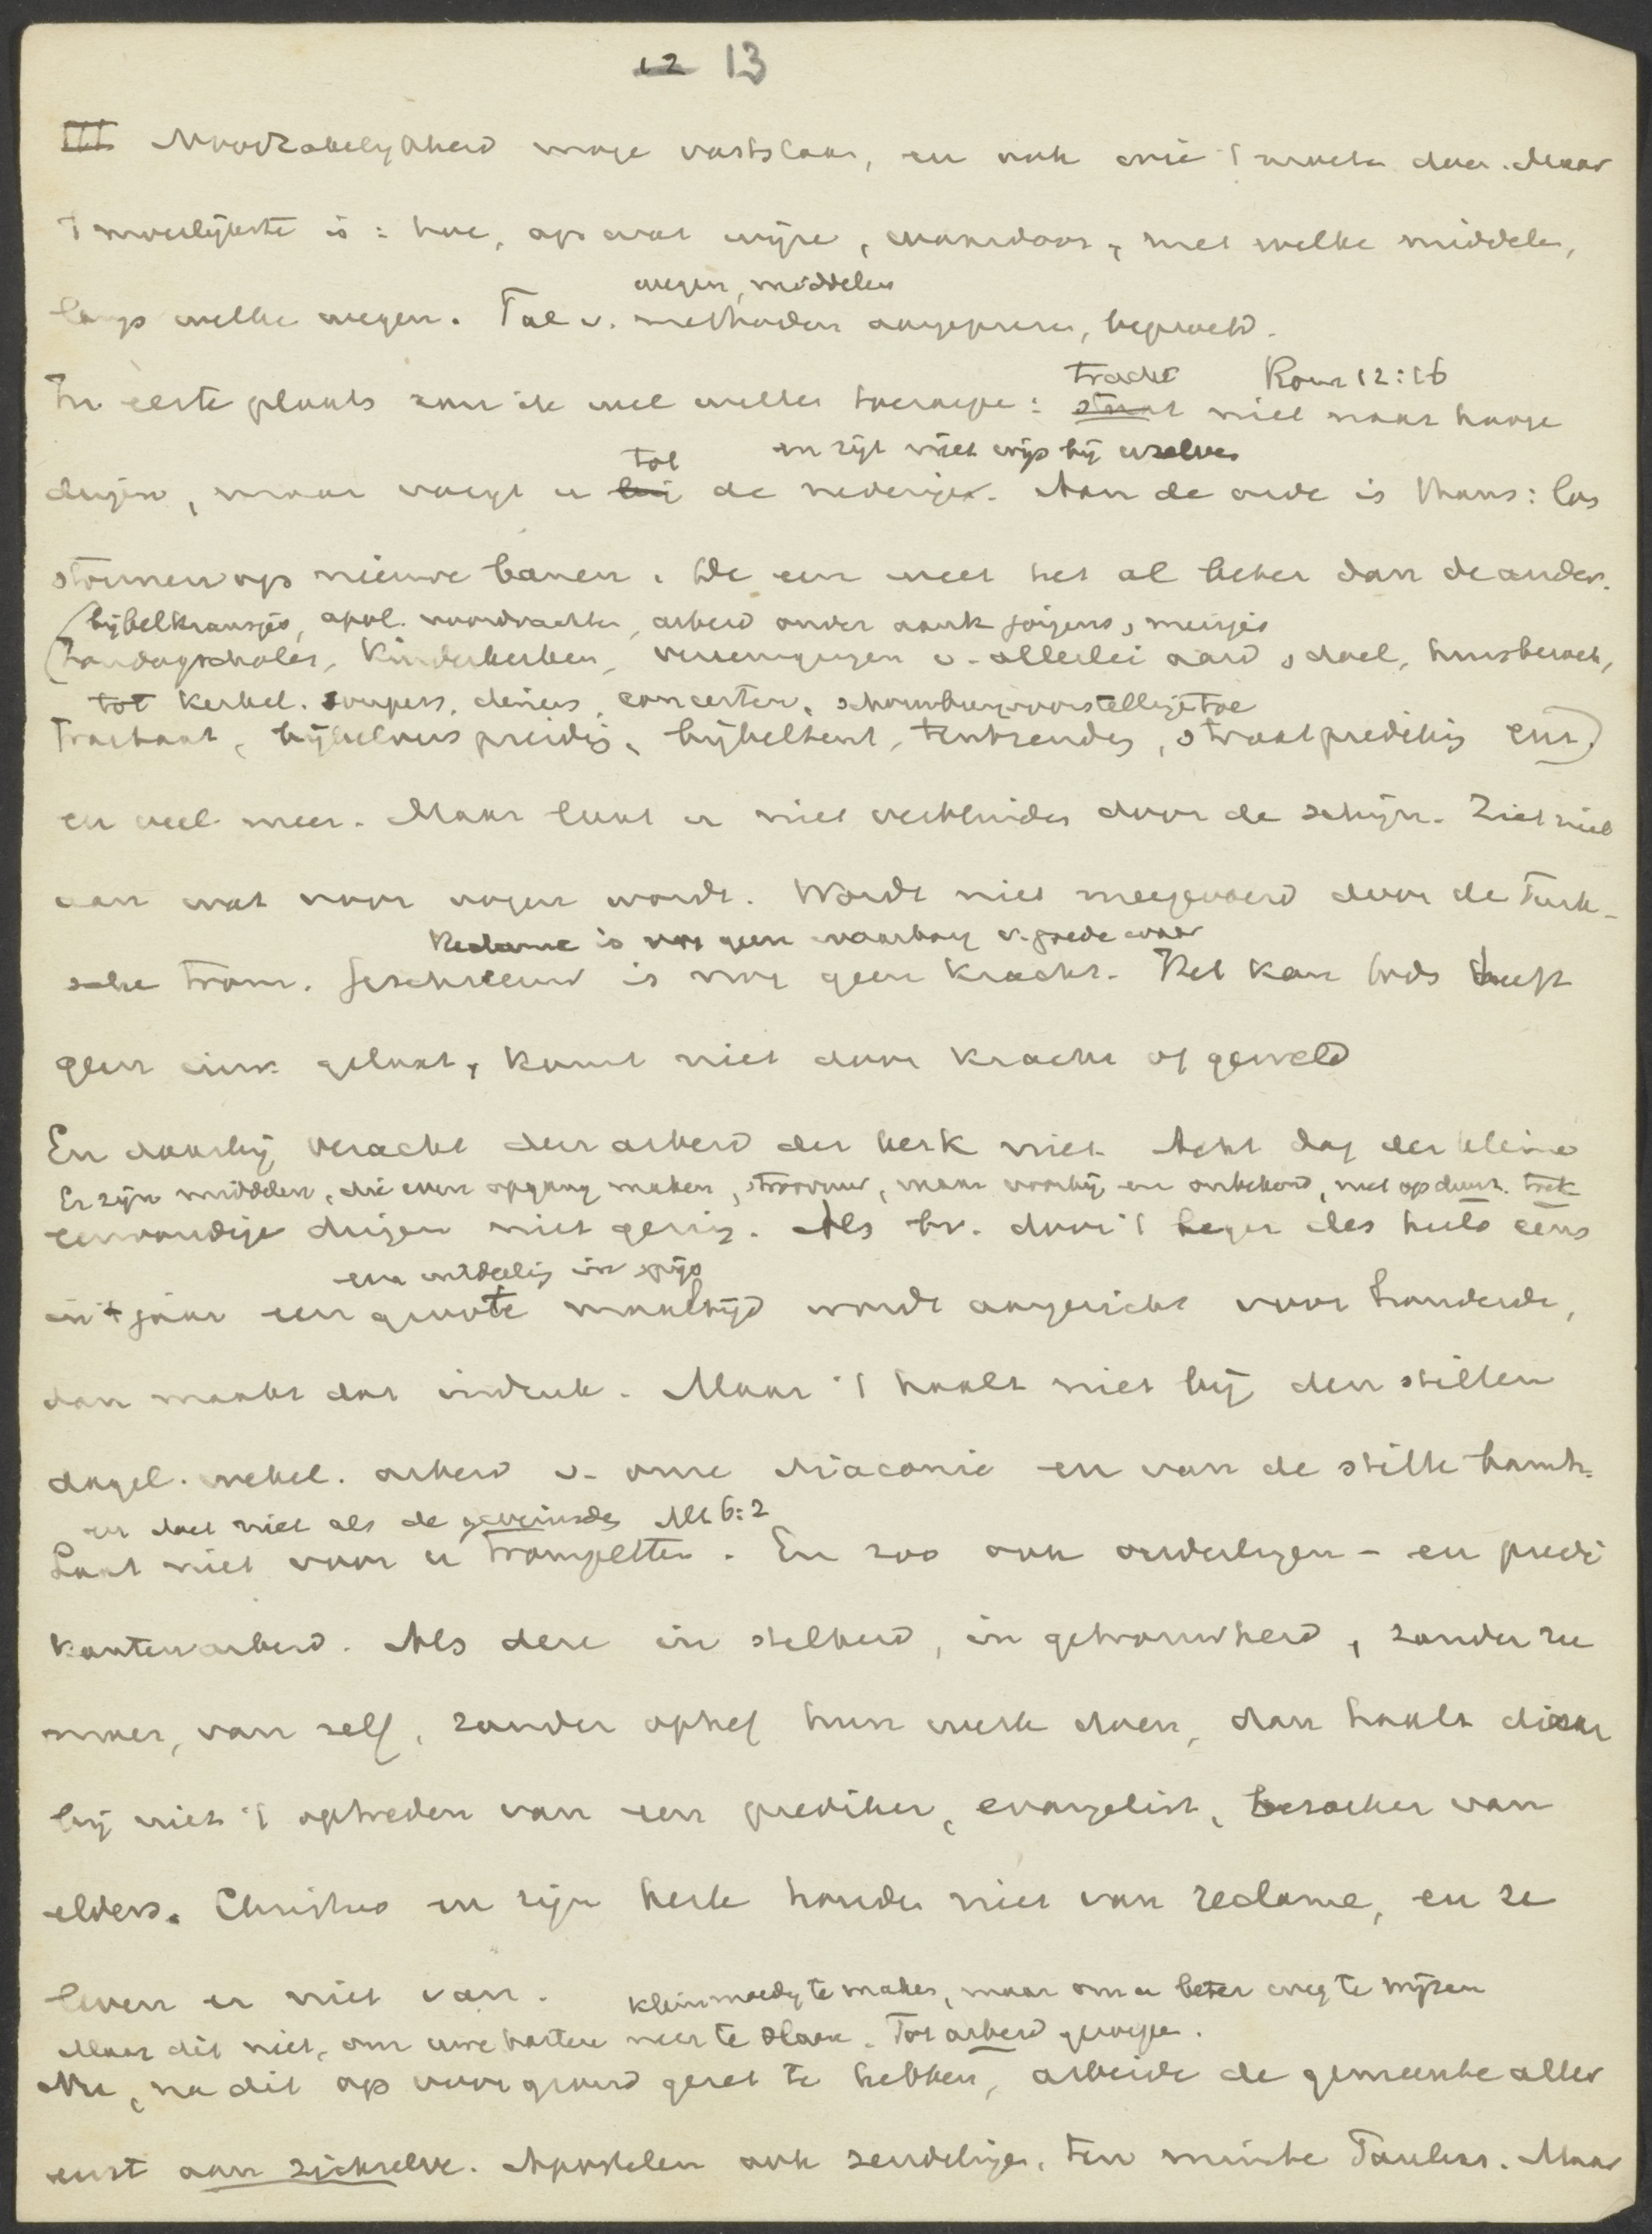 12 13
III Noodzakelijkheid moge vaststaan, en ook wie 't moeten doen. Maar
't moeilijkste is: hoe, op wat wijze, waardoor, met welke middelen,
wegen, middelen
langs welke wegen. Tal v. methoden aangeprezen, beproefd.
tracht Rom 12:16
In eerste plaats zou ik wel willen toeroepen: staat niet naar hooge
tot en zijt niet wijs bij uzelven
dingen, maar voegt u bij de nederige. Aan de orde is thans: los
stormen op nieuwe banen. De een weet het al beter dan de ander.
bijbelkransjes, apol. voordrachten, arbeid onder aank. jongens, meisjes
(Zondagscholen, Kinderkerken, vereenigingen v. allerlei aard, doel, huisbezoek,
tot kerkel. soupers, diners, concerten, schouwburgvoorstellingen toe
Tractaat, bijbelverspreiding, bijbeltent, tentzending, straatprediking enz.)
en veel meer. Maar laat u niet verblinden door de schijn. Ziet niet
aan wat voor oogen wordt. Wordt niet meegevoerd door de Turk-
Reclame is nog geen waarborg v. goede waar
sche trom. Geschreeuw is nog geen kracht. Het kon. Gods heeft
geen gelaat, komt niet door kracht of geweld
En daarbij veracht den arbeid der kerk niet. Acht dag der kleine
Er zijn middelen, die even opgang maken, stroovuur, maar voorbij en onbekend, niet op duur. trek
eenvoudige dingen niet gering. Als bv. door 't leger des heils eens
een uitdeeling in spijs
in 't jaar een groote maaltijd wordt aangericht voor honderde,
dan maakt dat indruk. Maar 't haalt niet bij den stillen
dagel. wekel. arbeid v. onze diaconie en van de stille
en doet niet als de geveinsden Mt 6:2
Laat niet voor u trompetten. En zoo ook ouderlingen- en predi
kantenarbeid. Als deze in stilheid, in getrouwheid, zonder ru
moer, van zelf, zonder ophef hun werk doen, dan haalt daar
bij niet 't optreden van een prediker, evangelist, bezoeker van
elders. Christus en zijn kerk houden niet van reclame, en ze
leven er niet van. kleinmoedig te maken, maar om u beter weg te wijzen
Maar dit niet, om uwe harten neer te slaan. Tot arbeid geroepen.
Nu, na dit op voorgrond gezet te hebben, arbeide de gemeente aller
eerst aan zichzelve. Apostelen ook zendelingen, ten minste Paulus. Maar